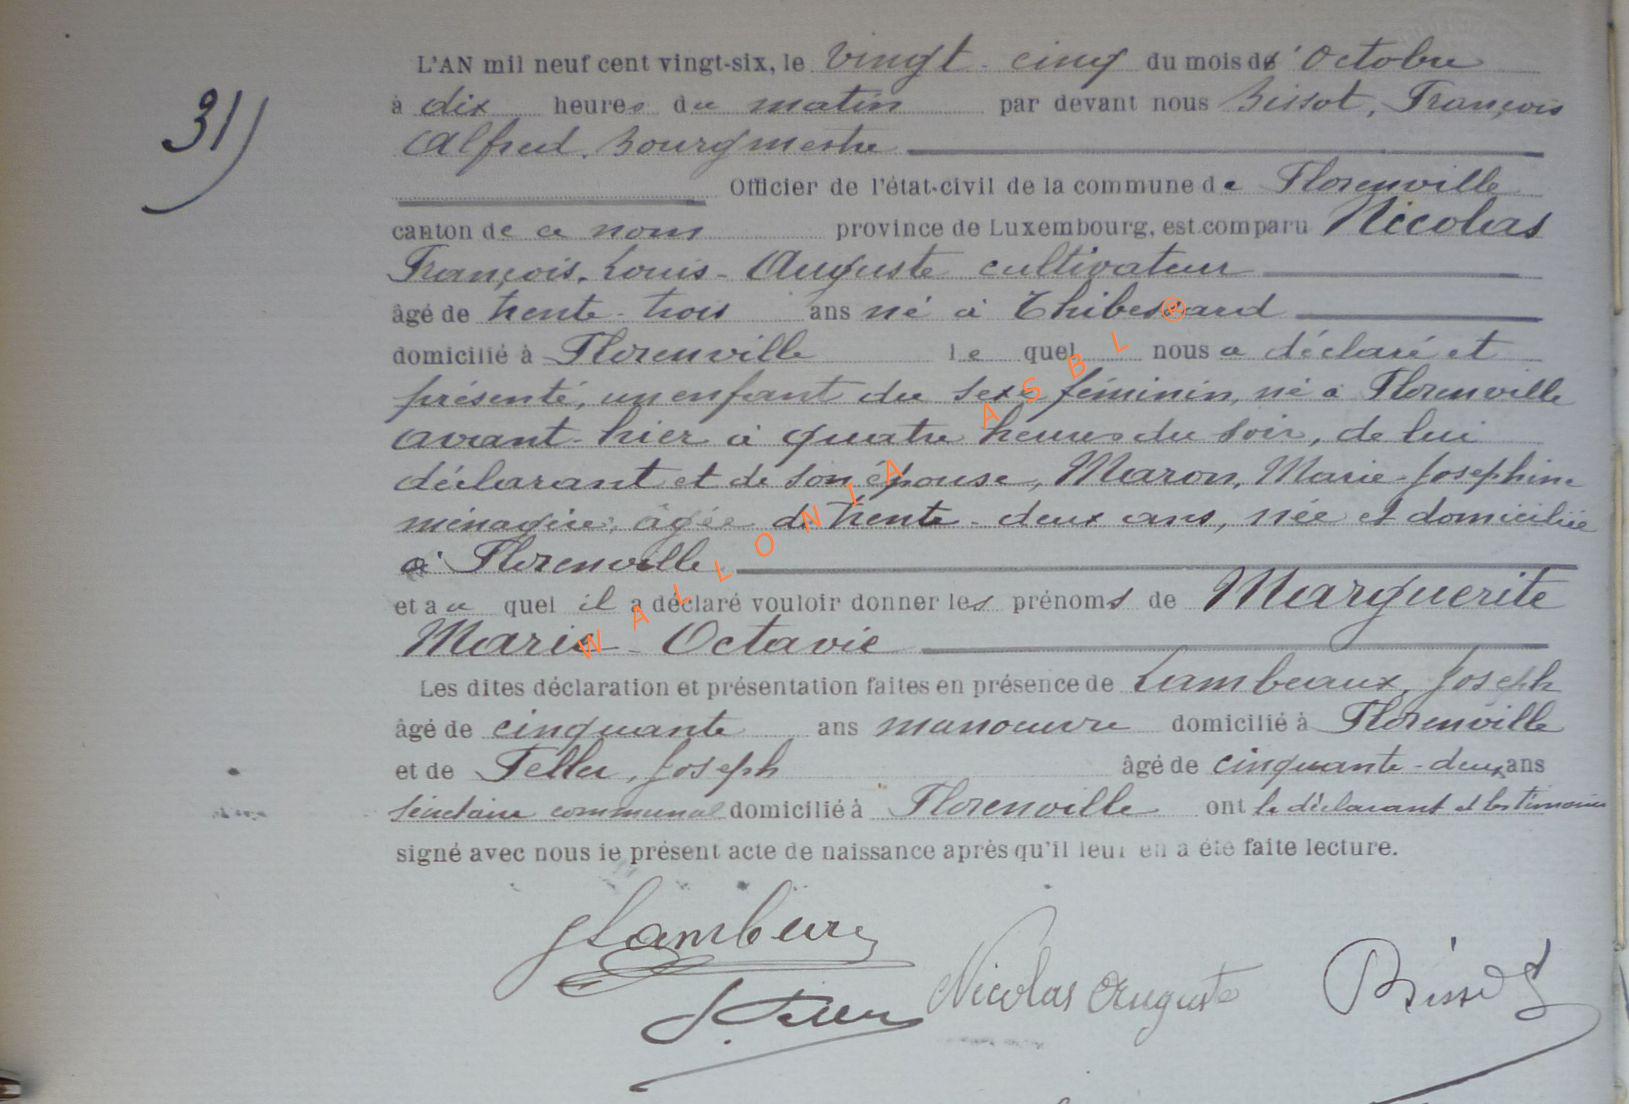 31)
L'AN mil neuf cent vingt-six, le vingt-cinq du mois d'Octobre
à dix heures du matin par devant nous Bissot, François
Alfred. Bourgmestre
Officier de l'état-civil de la commune de Florenville
canton de ce nom province de Luxembourg, est comparu Nicolas
François-Louis-Auguste cultivateur
âgé de trente-trois ans né à Thibessard
domicilié à Florenville le quel nous a déclaré et
présenté, un enfant du sexe féminin, né à Florenville
avant-hier à quatre heures du soir, de lui
déclarant et de son épouse, Maron, Marie-Josephine
ménagère, âgée de trente-deux ans, née et domiciliée
à Florenville
et au quel il a déclaré vouloir donner les prénoms de Marguerite
Marie-Octavie
Les dites déclaration et présentation faites en présence de Lambeaux, Joseph
âgé de cinquante ans manoeuvre domicilié à Florenville
et de Feller, Joseph âgé de cinquante-deux ans
sécretaire communal domicilié à Florenville ont le déclarant et les témoins
signé avec nous le présent acte de naissance après qu'il leur en a été faite lecture.
Nicolas Auguste Bissot
WALLONIA ASBL ®